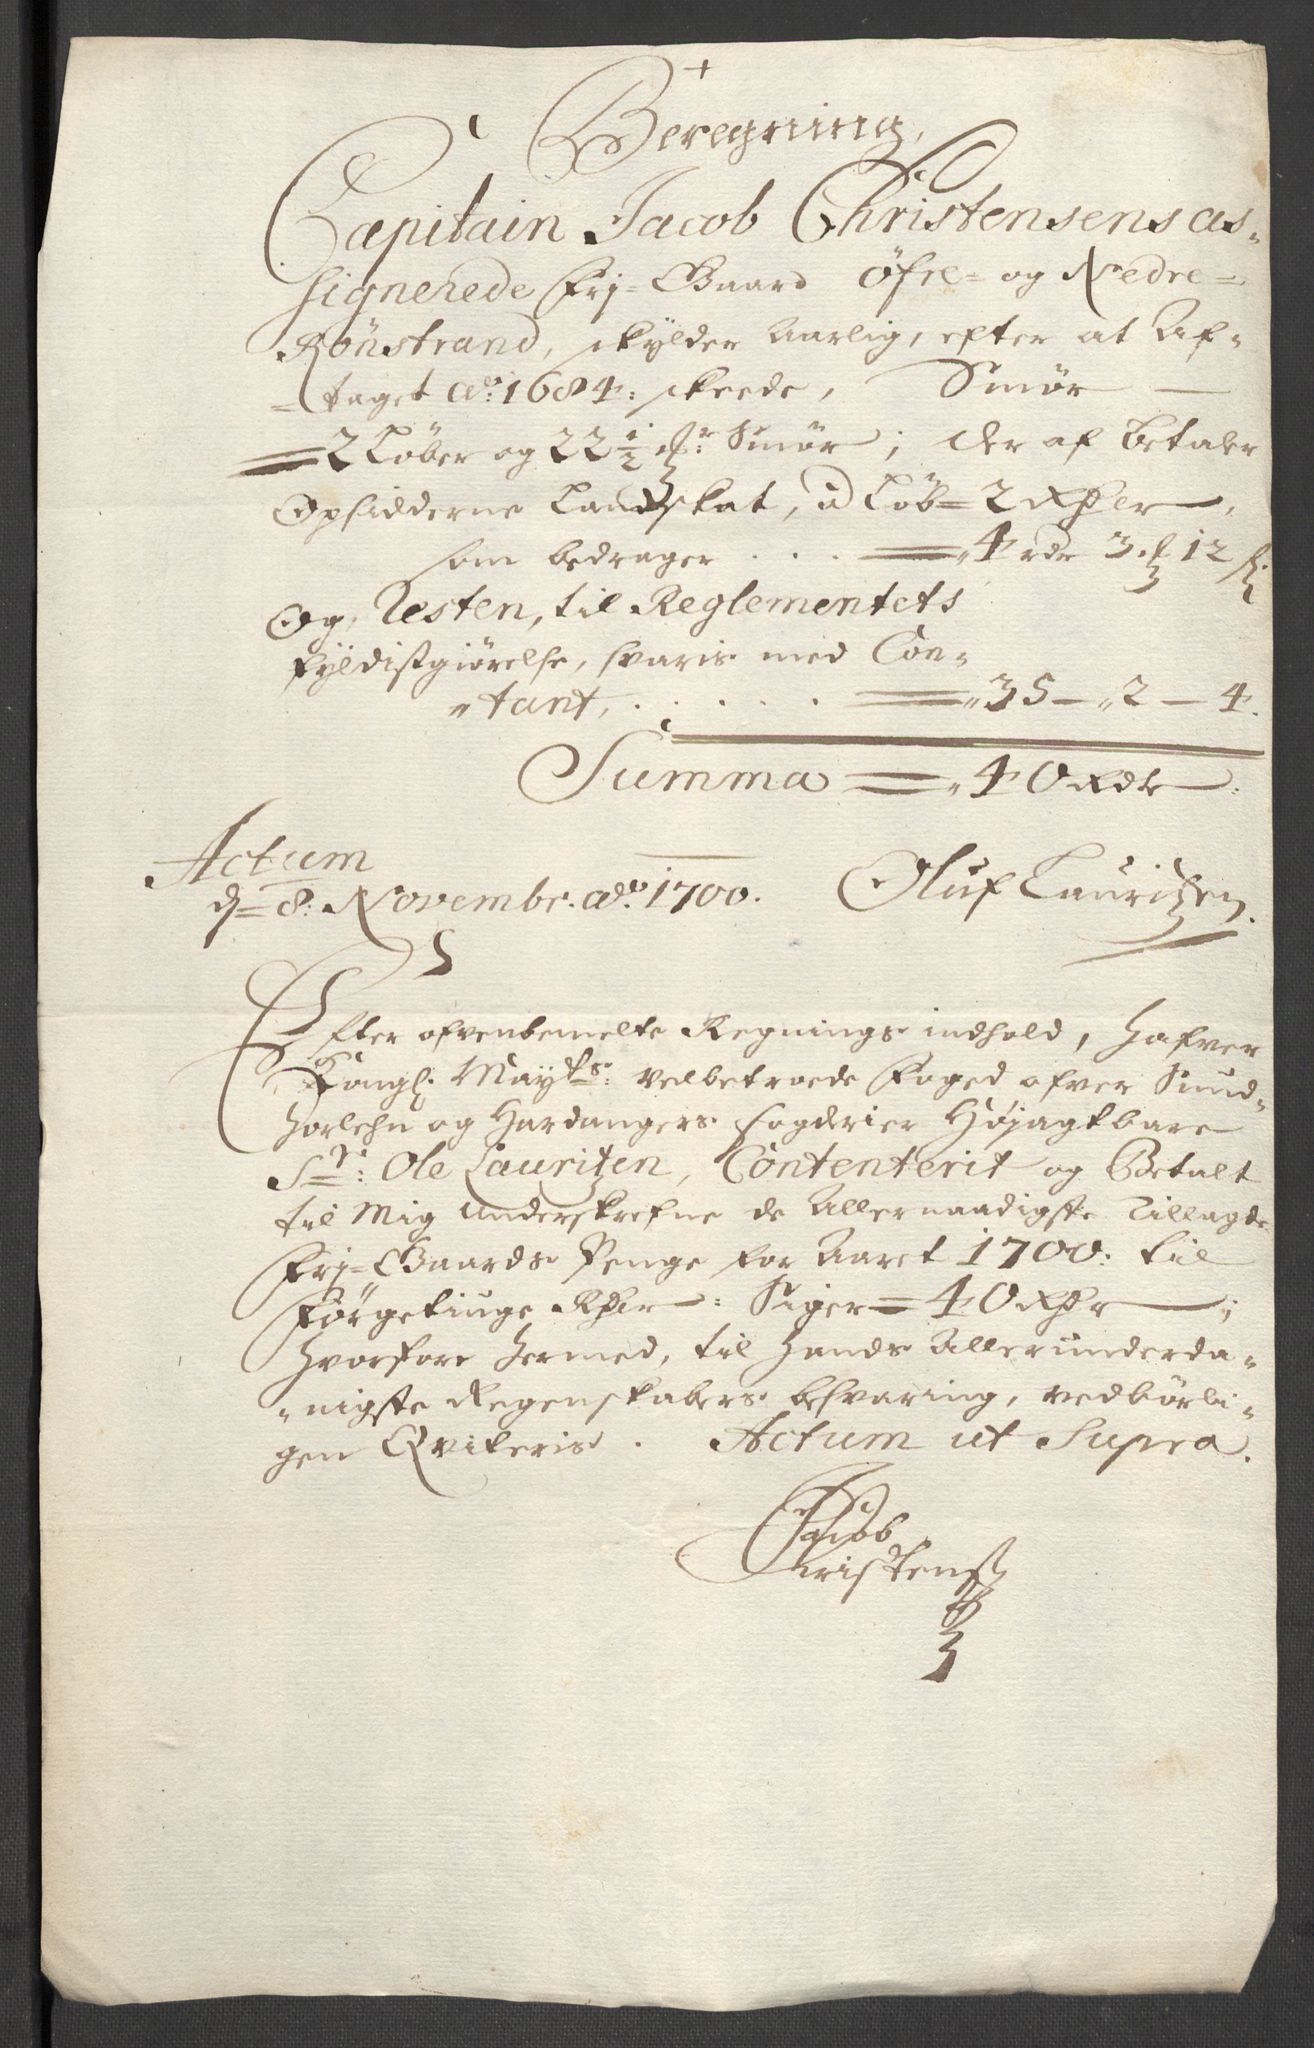 Beregning,
Capitain Jacob Christensens as-
signerede Frj-Gaard Øfre- og Nedre-
Rönstrand, skylder aarlig, efter at Af-
taget Ao: 1684: skeede, Smør
2 Løber og 22 1/2 mr: Smør; der af betaler
Opsidderne Landskat, a Løb = 2 Rdlr,
som bedrager . . . 4 rdr 3 mk 12 s:
Og, Resten, til Reglementets
fyldistgiørelse, svaris med Con-
tant, . . . . . 35 - 2 - 4.
Summa = 40 Rdr:
Actum
d= 8: Novembr. Ao. 1700. Oluf Lauritzen.
Efter ofvenbemelte Regnings indhold, hafver
Kongl. Mayts: velbetroede Foged ofver Sund-
horlehn og Hardangers fogderier Højagtbare
Sr: Ole Lauritzen, Contenterit og Betalt
til Mig underskrefne de Allernaadigste Tillagde
Frj-Gaards Penge for Aaret 1700: til
Førgetiuge Rdlr: Siger = 40 Rdlr;
hvorfore hermed, til hands Allerunderda-
nigste Regenskabers besvaring, vedbörli-
gen Qviteris. Actum ut Supra.
Jacob
Christens